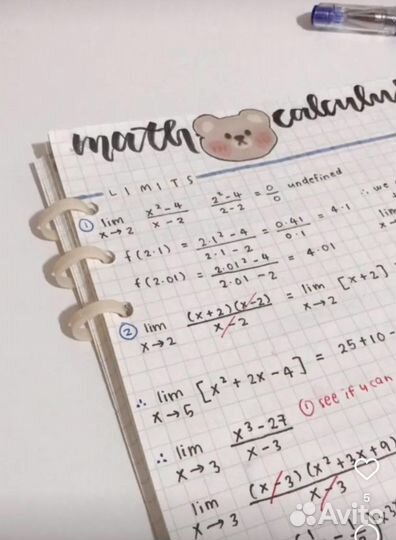 math calculu
LIMITS
① lim x→2 x²-4 / x-2   2²-4 / 2-2 = 0/0 undefined ∴ we
f(2.1) = 2.1²-4 / 2.1-2 = 0.41 / 0.1 = 4.1 lim
f(2.01) = 2.01²-4 / 2.01-2 = 4.01
② lim x→2 (x+2)(x-2) / x-2 = lim x→2 [x+2]
∴ lim x→5 [x²+2x-4] = 25+10-
① see if u can
∴ lim x→3 x³-27 / x-3
lim x→3 (x-3)(x²+3x+9) / x-3
5
Avito